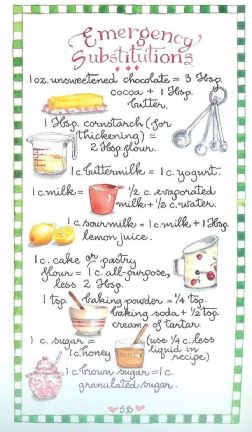 Emergency
Substitutions
1 oz. unsweetened chocolate = 3 Tbsp.
cocoa + 1 Tbsp.
butter.
1 Tbsp. cornstarch (for
thickening) =
2 Tbsp. flour.
1 c. buttermilk = 1 c. yogurt.
1 c. milk = 1/2 c. evaporated
milk + 1/2 c. water.
1 c. sour milk = 1 c. milk + 1 Tbsp.
lemon juice.
1 c. cake or pastry
flour = 1 c. all-purpose,
less 2 Tbsp.
1 tsp. baking powder = 1/4 tsp.
baking soda + 1/2 tsp.
cream of tartar.
1 c. sugar = (use 1/4 c. less
1 c. honey liquid in
recipe)
1 c. brown sugar = 1 c.
granulated sugar.
SB